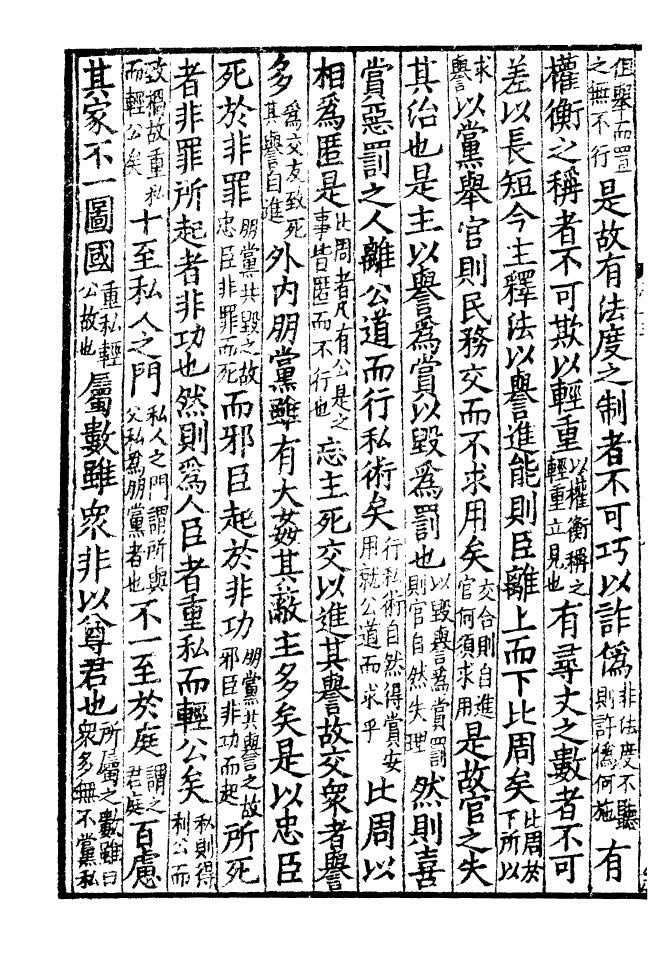 但舉而置之無不行是故有法度之制者不可巧以詐僞非法度不聽則詐僞何施有
權衡之稱者不可欺以輕重以權衡稱之輕重立見也有尋丈之數者不可
差以長短今主釋法以譽進能則臣離上而下比周矣比周於下所以
求譽以黨舉官則民務交而不求用矣交合則自進官何須求用是故官之失
其治也是主以譽爲賞以毀爲罰也以毀譽爲賞罰則官自然失理然則喜
賞惡罰之人離公道而行私術矣行私術自然得賞安用就公道而求乎比周以
相爲匿是比周者凡有公是之事皆匿而不行也忘主死交以進其譽故交衆者譽
多爲交友致死其譽自進外内朋黨雖有大姦其蔽主多矣是以忠臣
死於非罪朋黨共毀之故忠臣非罪而死而邪臣起於非功朋黨共譽之故邪臣非功而起所死
者非罪所起者非功也然則爲人臣者重私而輕公矣私則得利公而
致禍故重私而輕公矣十至私人之門私人之門謂所與父私爲朋黨者也不一至於庭謂之君庭百慮
其家不一圖國重私輕公故也屬數雖衆非以尊君也所屬之數雖曰衆多無不黨私